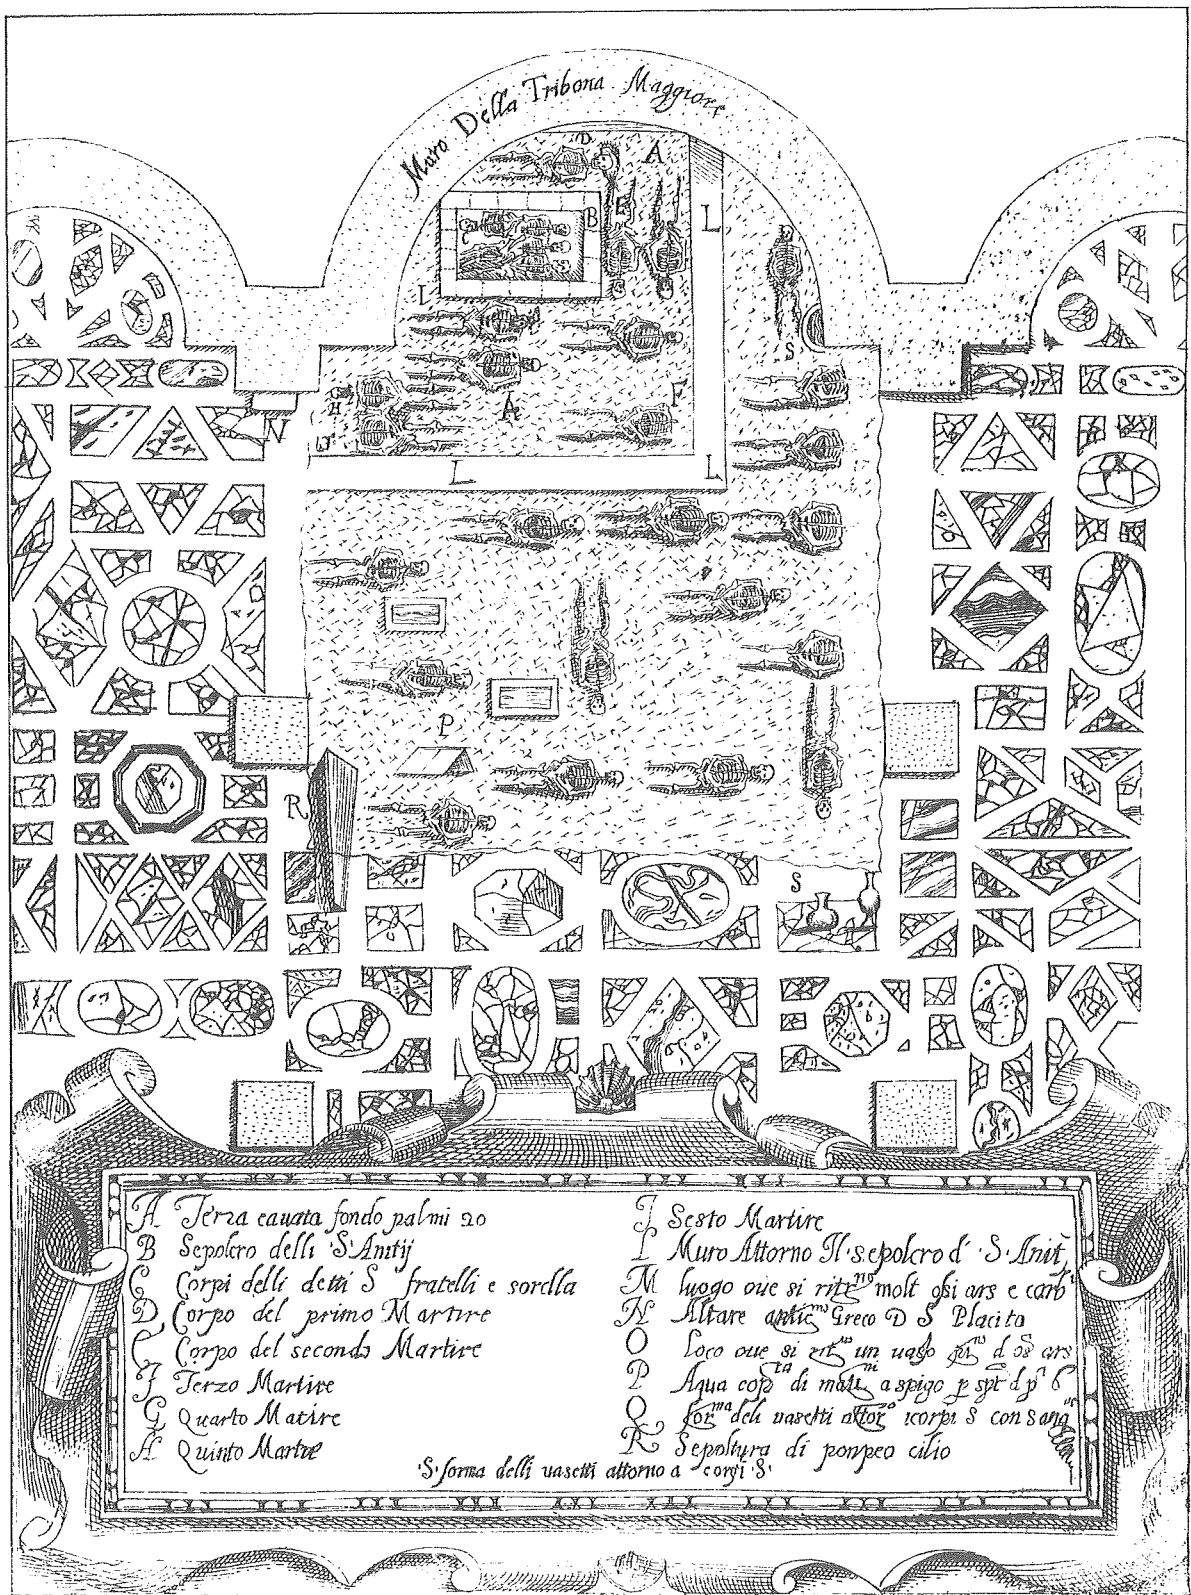 Muro Della Tribona Maggiore
D
A
E
B
C
L
G
I
S
H
A
F
N
L
L
P
R
S
A Terza cauata fondo palmi 20
B Sepolcro delli S. Anitij
C Corpi delli detti S fratelli e sorella
D Corpo del primo Martire
Corpo del secondo Martire
Terzo Martire
G Quarto Matire
H Quinto Martire
I Sesto Martire
L Muro Attorno Il sepolcro d' S. Anit
M luogo oue si rit^no molt osi ars e carb
N Altare antic^mo Greco D S Placito
O Loco oue si un uaso d ars
P Aqua di a spigo
Q deli uasetti corpi S con sang
R Sepoltura di pompeo cilio
S forma delli uasetti attorno a corpi S